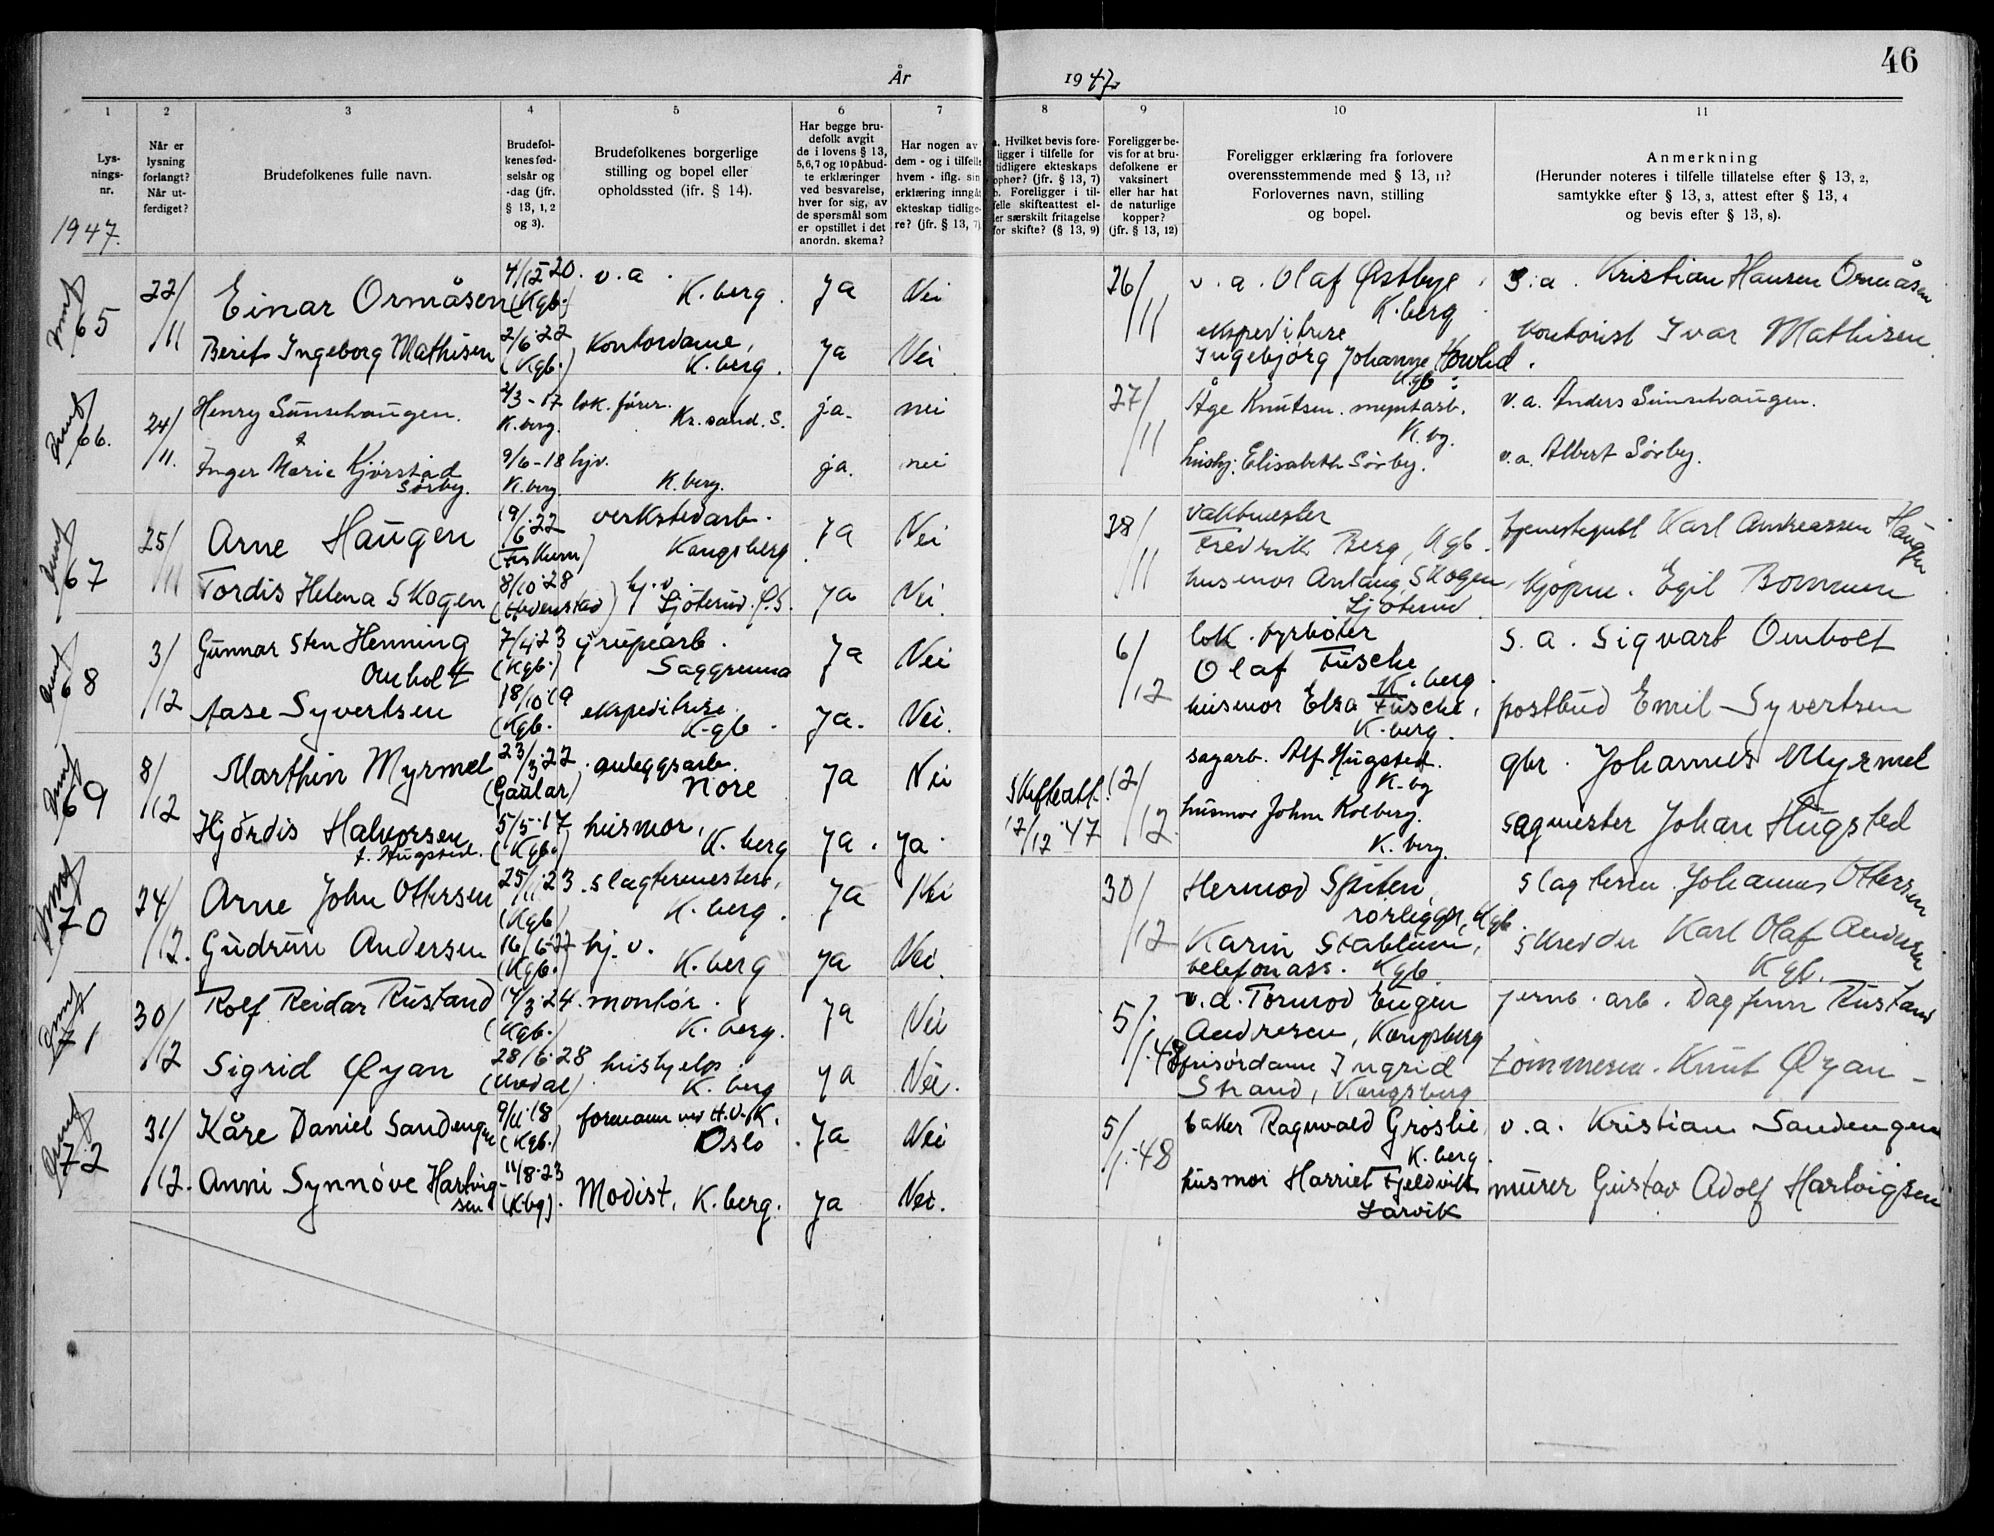 46
År 1947.
1 2 3 4 5 6 7 8 9 10 11
Lys-
nings-
nr.
Når er
lysning
forlangt?
Når ut-
ferdiget?
Brudefolkenes fulle navn.
Brudefol-
kenes fød-
selsår og
-dag (jfr.
§ 13, 1, 2
og 3).
Brudefolkenes borgerlige
stilling og bopel eller
opholdssted (jfr. § 14).
Har begge bru-
defolk avgit
de i lovens § 13,
5, 6, 7 og 10 påbud-
te erklæringer
ved besvarelse,
hver for sig, av
de spørsmål som
er opstillet i det
anordn. skema?
Har nogen av
dem - og i tilfelle
hvem - iflg. sin
erklæring inngåt
ekteskap tidlige-
re? (jfr. § 13, 7)
a. Hvilket bevis fore-
ligger i tilfelle for
tidligere ekteskaps
ophør? (jfr. § 13, 7)
b. Foreligger i til-
felle skifteattest el-
ler særskilt fritagelse
for skifte? (§ 13, 9)
Foreligger be-
vis for at bru-
defolkene er
vaksinert
eller har hat
de naturlige
kopper?
(jfr. § 13, 12)
Foreligger erklæring fra forlovere
overensstemmende med § 13, 11?
Forlovernes navn, stilling
og bopel.
Anmerkning
(Herunder noteres i tilfelle tillatelse efter § 13, 2,
samtykke efter § 13, 3, attest efter § 13, 4
og bevis efter § 13, 8).
1947.
65 22/11 Einar Ormåsen 4/12-20. (Kgb.) v.a. K.berg. ja Nei 26/11 v.a. Olaf Østbye, K.berg s.a. Kristian Hansen Ormåsen
Berit Ingeborg Mathisen 2/6-22 (Kgb.) Kontordame, K.berg. ja Nei ekspeditrise Ingebjørg Johanne Kgb. kontorist Ivar Mathisen
66. 24/11. Henry Sunnhaugen. 2/3-17 K.berg. lok.fører. Kr.sand.S. ja. nei 27/11 Åge Knutsen. myntarb. K.bg. v.a. Anders Sunnhaugen.
Inger Marie Kjørstad Sørby. 9/6-18 K.berg. hjv. K.berg. ja. nei husbj. Elisabeth Sørby. v.a. Albert Sørby.
67 25/11 Arne Haugen 19/6.22 (Fiskum) verkstedarb. Kongsberg ja Nei 28/11 vaktmester Fredrik Berg, Kgb. Karl Andreassen Haugen
Tordis Helena Skogen 8/10.28 hj.v. ja Nei husmor Aslaug Skogen, kjøpm. Egil Bommen
68 3/12 Gunnar Sten Henning Omholt 7/4.23 (Kgb.) grupearb. Saggrenna ja Nei 6/12 lok.fyrbøter Olaf Fusche K.berg. s.a. Sigvart Omholt
Aase Syvertsen 18/10.19 (Kgb. ekspeditrise K.gb. ja. Nei. husmor Elsa Fusche, K.berg. postbud Emil Syvertsen
69 8/12 Marthin Myrmel 23/3.22 (Gaular) anleggsarb. Nore ja Nei Skifteatt. 12/12 '47 12/12. sagarb. Alf Hugsted. K.bg gbr. Johannes Myrmel
Hjørdis Halvorsen f. Hugsted. 5/5.17 (Kgb.) husmor, K.berg ja. ja. husmor Johne Kolberg. K.berg. sagmester Johan Hugsted
70 24/12. Arne John Ottersen 25/11.23 (Kgb slagtermester, K.berg. ja Nei 30/12 Hermod Spiten, rørlegger, Kgb. slagterm. Johannes Ottersen
Gudrun Andersen 16/6-22 (Kgb.) hj.v. K.berg ja Nei. Karin Stablum, telefonass. Kgb skredder Karl Olaf Andersen Kgb.
71 30/12 Rolf Reidar Rustand 17/3.24. (Kgb.) montør. K.berg. ja Nei 5/1.48 v.a. Tormod Eugen Andresen, Kongsberg jernb.arb. Dagfinn Rustand
Sigrid Øyan 28/6.28 (Uvdal) hushjelp K.berg ja Nei. frisørdame Ingrid Strand, Kongsberg tømmerm. Knut Øyan -
72 31/12. Kåre Daniel Sandengen 9/11.18 (Kgb.) formann ved H.V.K. Oslo. ja Nei 5/1.48 baker Ragnvald Groslie, K.berg. v.a. Kristian Sandengen
Anni Synnøve Hartvigsen 11/8.23 (K.bg). Modist, K.berg. ja Nei. husmor Harriet Fjeldvik Larvik murer Gustav Adolf Hartvigsen